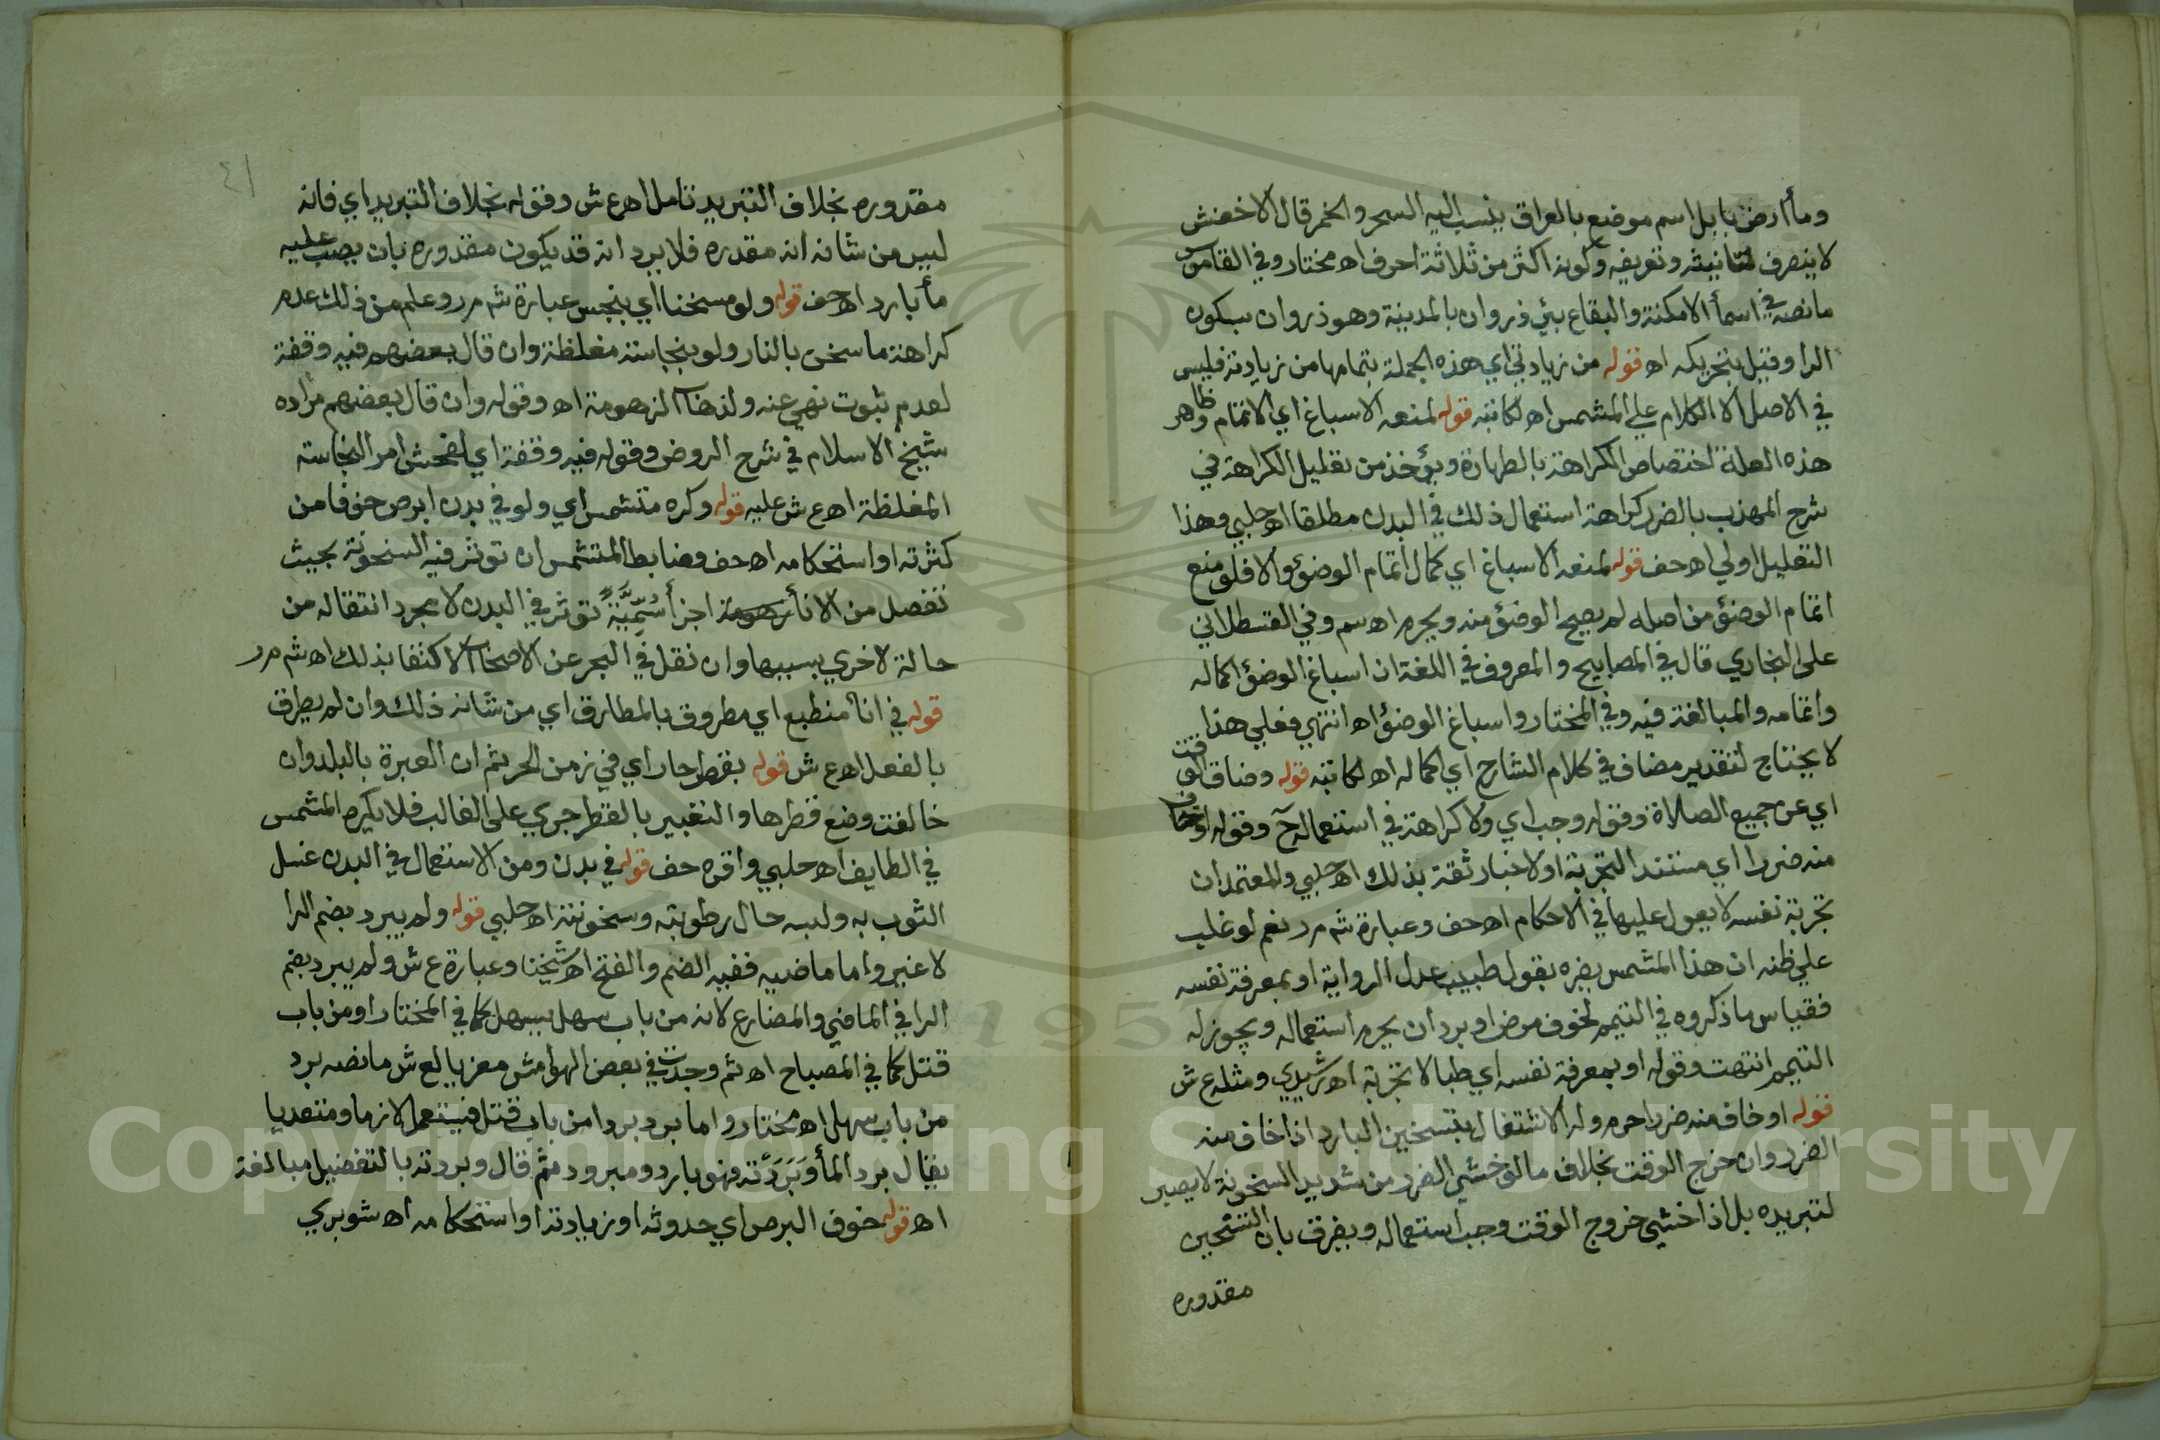 وماء أرض بابل اسم موضع بالعراق ينسب اليه السحر والخمر قال الاخفش
لا ينصرف لتانيثه وتعريفه وكونه اكثر من ثلاثة احرف اه مختار وفي القاموس
ما نصه في اسمأ الامكنة والبقاع بئي ذروان بالمدينة وهو ذروان بسكون
الرا وقيل بتحريكه اه قوله من زيادتي اي هذه الجملة بتمامها من زيادته فليس
في الاصل الا الكلام علي المشمس اه لكاتبه قوله لمنعه الاسباغ اي الاتمام وظاهر
هذه العلة اختصاص الكراهة بالطهارة ويؤخذ من تعليل الكراهة في
شرح المهذب بالضرر كراهة استعمال ذلك في البدن مطلقا اه حلبي وهذا
التعليل اولي اه حف قوله لمنعه الاسباغ اي كمال اتمام الوضؤ والا فلو منع
اتمام الوضؤ من اصله لم يصح الوضؤ منه ويحرم اه سم وفي القسطلاني
على البخاري قال في المصابيح والمعروف في اللغة ان اسباغ الوضؤ اكماله
واتمامه والمبالغة فيه وفي المختار واسباغ الوضؤ اه انتهي فعلي هذا
لا يحتاج لتقدير مضاف في كلام الشارح اي اكماله اه لكاتبه قوله وضاق الوقت
اي عن جميع الصلاة وقوله وجب اي ولا كراهة في استعماله ح وقوله او خاف
منه ضررا اي مستند التجربة او لاخبار ثقة بذلك اه حلبي والمعتمد ان
تجربة نفسه لا يعول عليها في الاحكام اه حف وعبارة ش م ر نعم لو غلب
علي ظنه ان هذا المشمس يضره بقول طبيب عدل الرواية او بمعرفة نفسه
فقياس ما ذكروه في التيمم لخوف مرض او برد ان يحرم استعماله ويجوز له
التيمم انتهت وقوله او بمعرفة نفسه اي طبا لا تجربة اه رشيدي ومثله ع ش
قوله او خاف منه ضررا حرم وله الاشتغال بتسخين البارد اذا خاف منه
الضرر وان خرج الوقت بخلاف ما لو خشي الضرر من شديد السخونة لا يصبر
لتبريده بل اذا خشي خروج الوقت وجب استعماله ويفرق بان التسخين
مقدوره
٤١
مقدوره بخلاف التبريد تامل اه ع ش وقوله بخلاف التبريد اي فانه
ليس من شانه انه مقدره فلا يرد انه قد يكون مقدوره بان يصب عليه
مأ بارد اه حف قوله ولو مسخنا اي بنجس عبارة ش م ر وعلم من ذلك عدم
كراهة ما سخن بالنار ولو بنجاسة مغلظة وان قال بعضهم فيه وقفة
لعدم ثبوت نهي عنه ولذهاب الزهومة اه وقوله وان قال بعضهم مراده
شيخ الاسلام في شرح الروض وقوله فيه وقفة اي لفحش امر النجاسة
المغلظة اه ع ش عليه قوله وكره متشمس اي ولو في بدن ابرص خوفا من
كثرته او استحكامه اه حف وضابط المتشمس ان توثر فيه السخونة بحيث
تفصل من الانأ زهومة اجزأ سُمِّيَّةً توثر في البدن لا مجرد انتقاله من
حالة لاخري بسببها وان نقل في البحر عن الاصحاب الاكتفا بذلك اه ش م ر
قوله في انأ منطبع اي مطروق بالمطارق اي من شانه ذلك وان لم يطرق
بالفعل اه ع ش قوله بقطر حار اي في زمن الحر ثم ان العبرة بالبلد وان
خالفت وضع قطرها والتعبير بالقطر جري على الغالب فلا يكره المشمس
في الطايف اه حلبي واقره حف قوله في بدن ومن الاستعمال في البدن غسل
الثوب به ولبسه حال رطوبته وسخونته اه حلبي قوله ولم يبرد بضم الرا
لا غير واما ماضيه ففيه الضم والفتح اه شيخنا وعبارة ع ش ولم يبرد بضم
الرا في الماضي والمضارع لانه من باب سهل يسهل كما في المختار او من باب
قتل كما في المصباح اه ثم وجدت في بعض الهوامش معزيا لع ش ما نصه برد
من باب سهل اه مختار واما برد بردا من باب قتل فيستعمل لازما ومتعديا
يقال برد المأ وَبَرَدْته فهو بارد ومبرود ثم قال وبردته بالتفضيل مبالغة
اه قوله خوف البرص اي حدوثه او زيادته او استحكامه اه شوبري
Copyright © King Saud University
1957